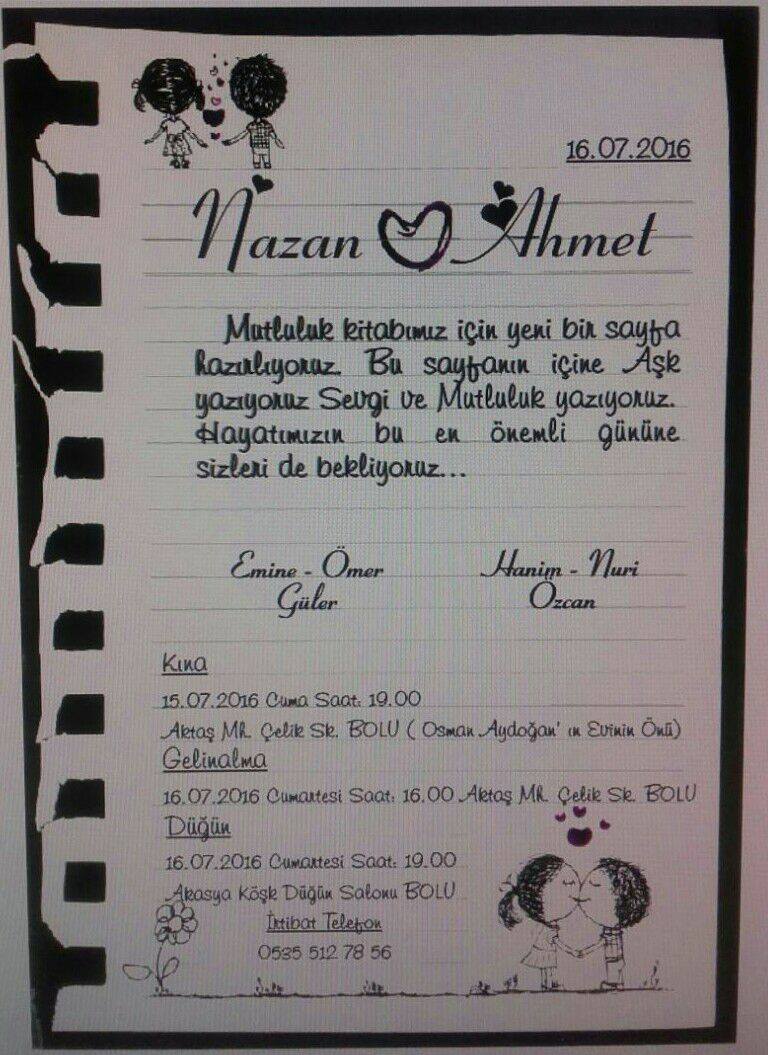 16.07.2016
Nazan Ahmet
Mutluluk kitabımız için yeni bir sayfa
hazırlıyoruz. Bu sayfanın içine Aşk
yazıyoruz Sevgi ve Mutluluk yazıyoruz.
Hayatımızın bu en önemli gününe
sizleri de bekliyoruz...
Emine - Ömer
Güler
Hanim - Nuri
Özcan
Kına
15.07.2016 Cuma Saat: 19.00
Aktaş Mh. Çelik Sk. BOLU ( Osman Aydoğan' ın Evinin Önü)
Gelinalma
16.07.2016 Cumartesi Saat: 16.00 Aktaş Mh. Çelik Sk. BOLU
Düğün
16.07.2016 Cumartesi Saat: 19.00
Akasya Köşk Düğün Salonu BOLU
İrtibat Telefon
0535 512 78 56